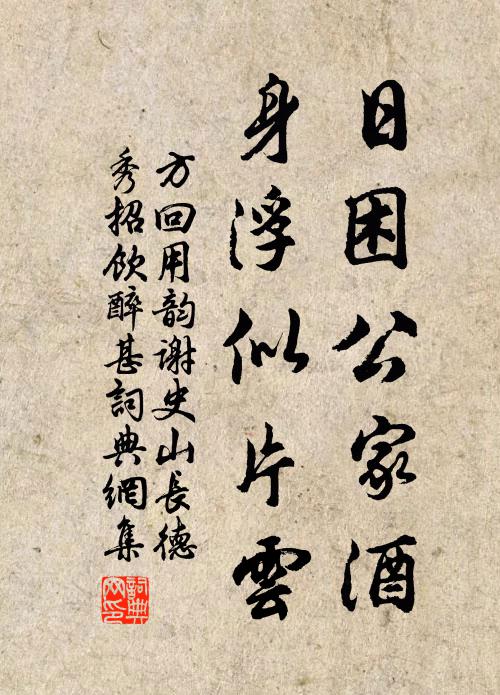 日困公家酒
身浮似片雲
方回用韵謝史山長德
秀招飲醉甚詞典網集
詞典網印